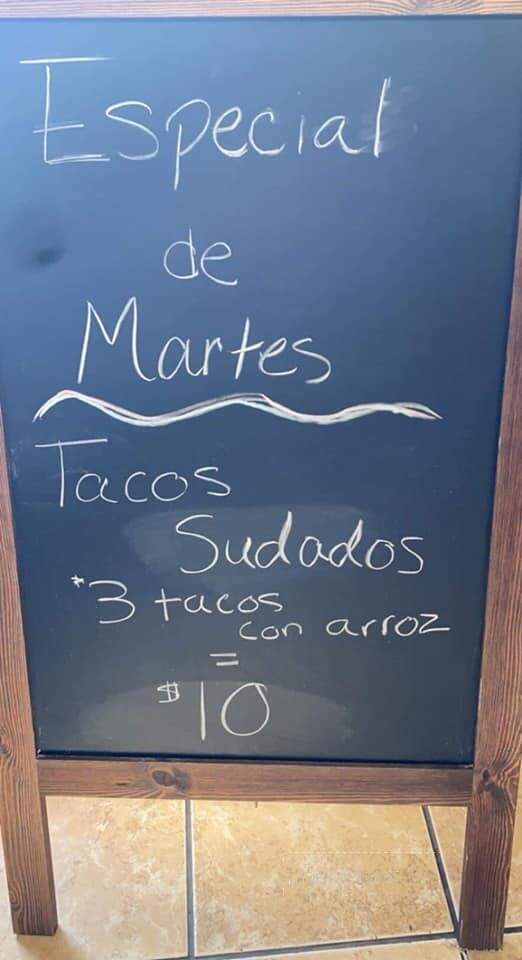 Especial
de
Martes
Tacos
Sudados
*3 tacos
con arroz
=
$10